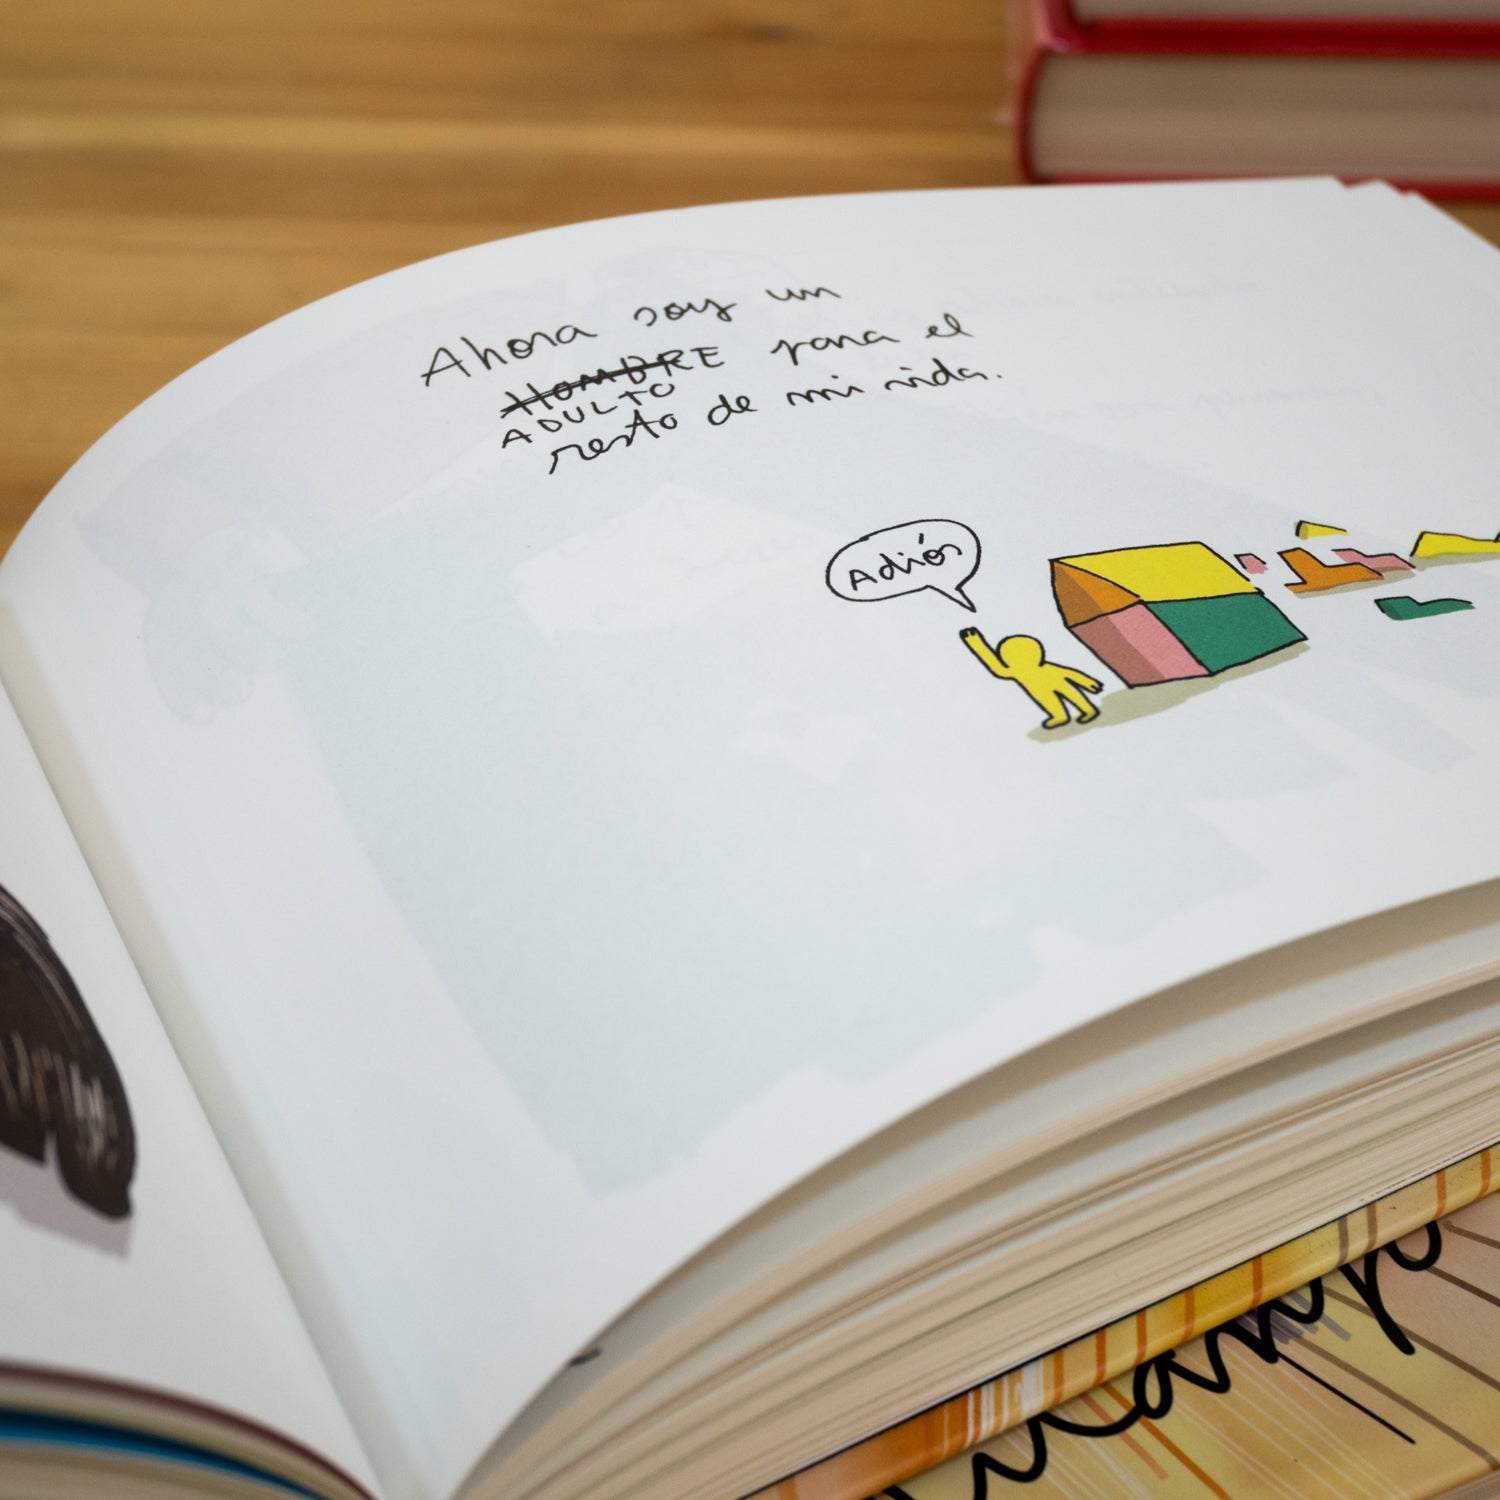 Ahora soy un
HOMBRE para el
ADULTO
resto de mi vida.
Adiós